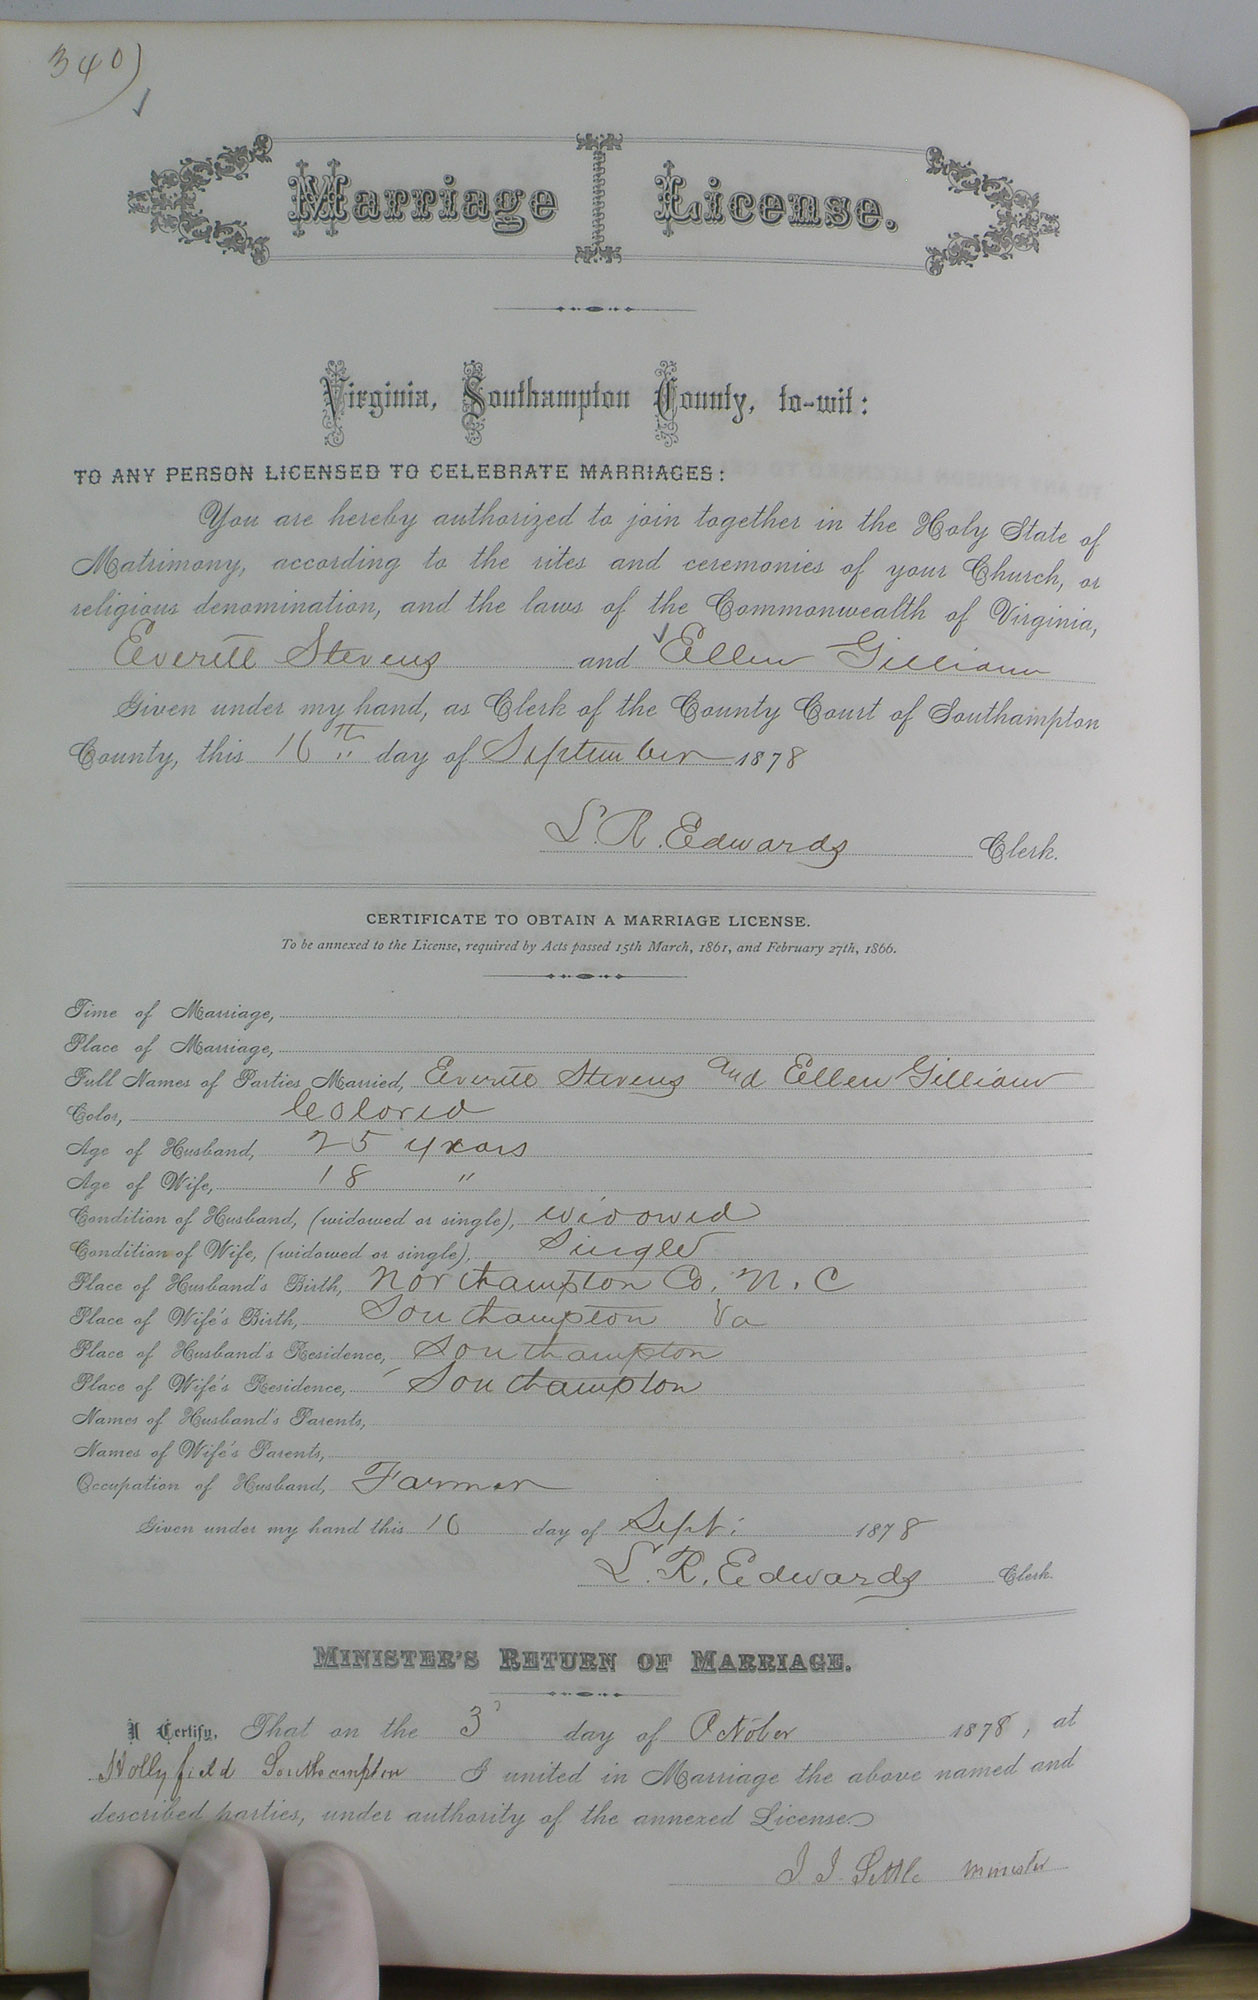 340)
Marriage License.
Virginia, Southampton County, to-wit:
TO ANY PERSON LICENSED TO CELEBRATE MARRIAGES:
You are hereby authorized to join together in the Holy State of
Matrimony, according to the rites and ceremonies of your Church, or
religious denomination, and the laws of the Commonwealth of Virginia,
Everett Stevens and Ellen Gilliam
Given under my hand, as Clerk of the County Court of Southampton
County, this 16th day of September 1878
L. R. Edwards Clerk.
CERTIFICATE TO OBTAIN A MARRIAGE LICENSE.
To be annexed to the License, required by Acts passed 15th March, 1861, and February 27th, 1866.
Time of Marriage,
Place of Marriage,
Full Names of Parties Married, Everett Stevens and Ellen Gilliam
Color, Colored
Age of Husband, 25 years
Age of Wife, 18 "
Condition of Husband, (widowed or single), widowed
Condition of Wife, (widowed or single), Single
Place of Husband's Birth, Northampton Co, N. C
Place of Wife's Birth, Southampton Va
Place of Husband's Residence, Southampton
Place of Wife's Residence, Southampton
Names of Husband's Parents,
Names of Wife's Parents,
Occupation of Husband, Farmer
Given under my hand this 16 day of Sept: 1878
L. R. Edwards Clerk.
MINISTER'S RETURN OF MARRIAGE.
I Certify, That on the 3 day of October 1878, at
Hollyfield Southampton I united in Marriage the above named and
described parties, under authority of the annexed License
J. J. Settle minister